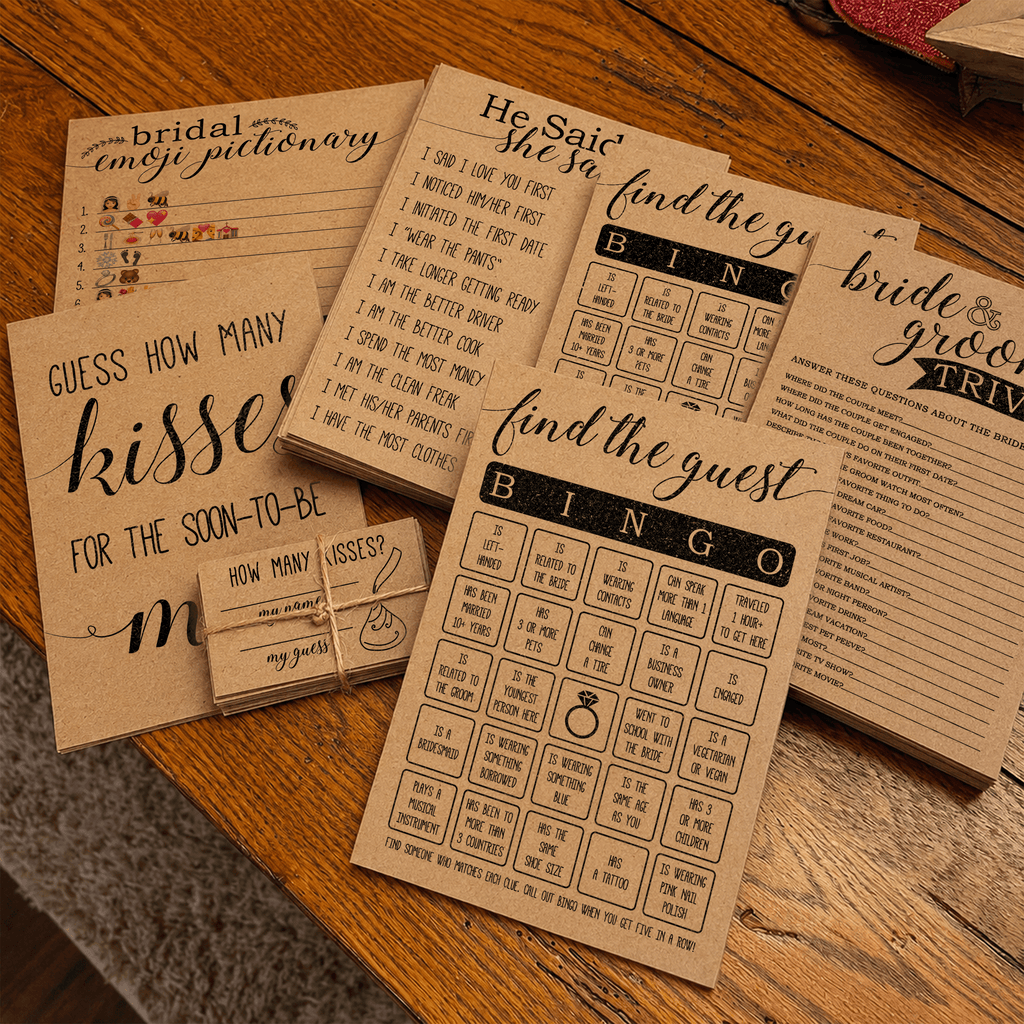 bridal
emoji pictionary
1.
2.
3.
4.
5.
6.
He Said
she sa
I SAID I LOVE YOU FIRST
I NOTICED HIM/HER FIRST
I INITIATED THE FIRST DATE
I "WEAR THE PANTS"
I TAKE LONGER GETTING READY
I AM THE BETTER DRIVER
I AM THE BETTER COOK
I SPEND THE MOST MONEY
I AM THE CLEAN FREAK
I MET HIS/HER PARENTS FIR
I HAVE THE MOST CLOTHES
find the gu
B I N G
IS
LEFT-
HANDED
IS
RELATED TO
THE BRIDE
IS
WEARING
CONTACTS
CAN
MORE
LAN
HAS BEEN
MARRIED
10+ YEARS
HAS
3 OR MORE
PETS
CAN
CHANGE
A TIRE
IS THE
bride &
groo
TRIV
ANSWER THESE QUESTIONS ABOUT THE BRIDE
WHERE DID THE COUPLE MEET?
WHERE DID THE COUPLE GET ENGAGED?
HOW LONG HAS THE COUPLE BEEN TOGETHER?
WHAT DID THE COUPLE DO ON THEIR FIRST DATE?
DESCRIBE
'S FAVORITE OUTFIT
E GROOM WATCH MOST OFTEN?
FAVORITE THING TO DO?
DREAM CAR?
AVORITE FOOD?
AVORITE RESTAURANT?
E WORK?
FIRST JOB?
AVORITE MUSICAL ARTIST?
VORITE BAND?
OR NIGHT PERSON?
ORITE DRINK?
EAM VACATION?
EST PET PEEVE?
MOST?
RITE TV SHOW?
RITE MOVIE?
GUESS HOW MANY
kisses
FOR THE SOON-TO-BE
m
HOW MANY KISSES?
my name
my guess
find the guest
B I N G O
IS
LEFT-
HANDED
IS
RELATED TO
THE BRIDE
IS
WEARING
CONTACTS
CAN SPEAK
MORE THAN 1
LANGUAGE
TRAVELED
1 HOUR+
TO GET HERE
HAS BEEN
MARRIED
10+ YEARS
HAS
3 OR MORE
PETS
CAN
CHANGE
A TIRE
IS A
BUSINESS
OWNER
IS
ENGAGED
IS
RELATED TO
THE GROOM
IS THE
YOUNGEST
PERSON HERE
WENT TO
SCHOOL WITH
THE BRIDE
IS A
VEGETARIAN
OR VEGAN
IS A
BRIDESMAID
IS WEARING
SOMETHING
BORROWED
IS WEARING
SOMETHING
BLUE
IS THE
SAME AGE
AS YOU
HAS 3
OR MORE
CHILDREN
PLAYS A
MUSICAL
INSTRUMENT
HAS BEEN TO
MORE THAN
3 COUNTRIES
HAS THE
SAME
SHOE SIZE
HAS
A TATTOO
IS WEARING
PINK NAIL
POLISH
FIND SOMEONE WHO MATCHES EACH CLUE. CALL OUT BINGO WHEN YOU GET FIVE IN A ROW!